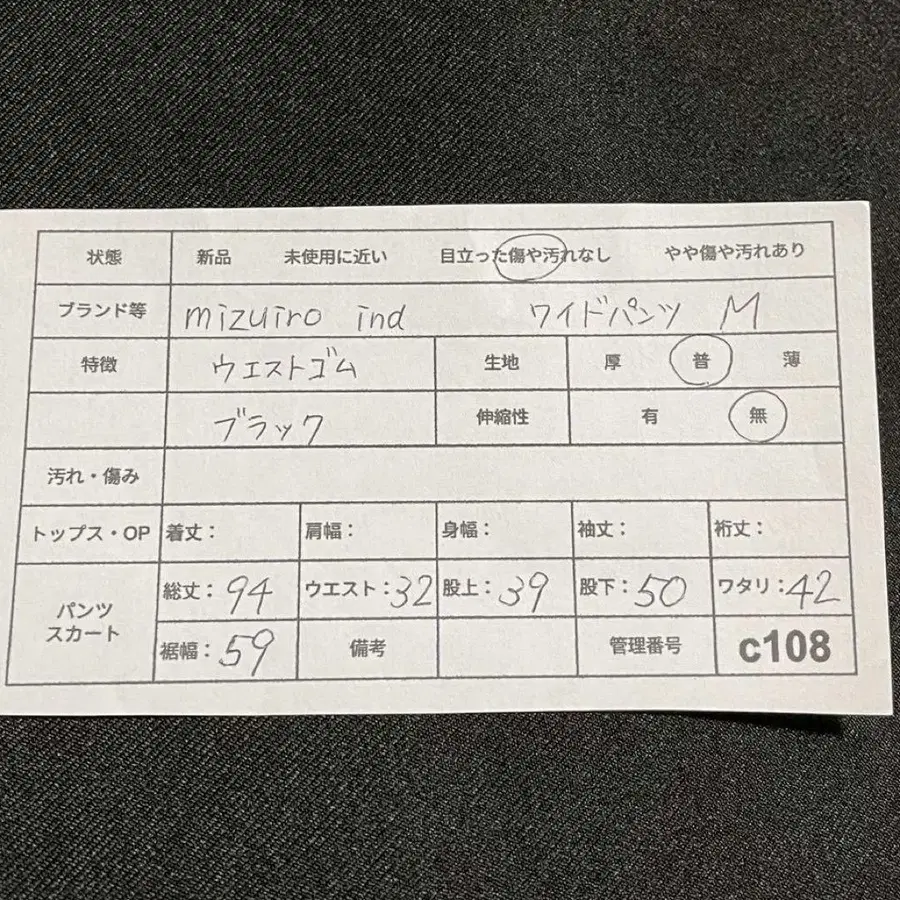 状態 新品 未使用に近い 目立った傷や汚れなし やや傷や汚れあり
ブランド等 mizuiro ind ワイドパンツ M
特徴 ウエストゴム 生地 厚 普 薄
ブラック 伸縮性 有 無
汚れ・傷み
トップス・OP 着丈： 肩幅： 身幅： 袖丈： 裄丈：
パンツ スカート 総丈：94 ウエスト：32 股上：39 股下：50 ワタリ：42
裾幅：59 備考 管理番号 c108